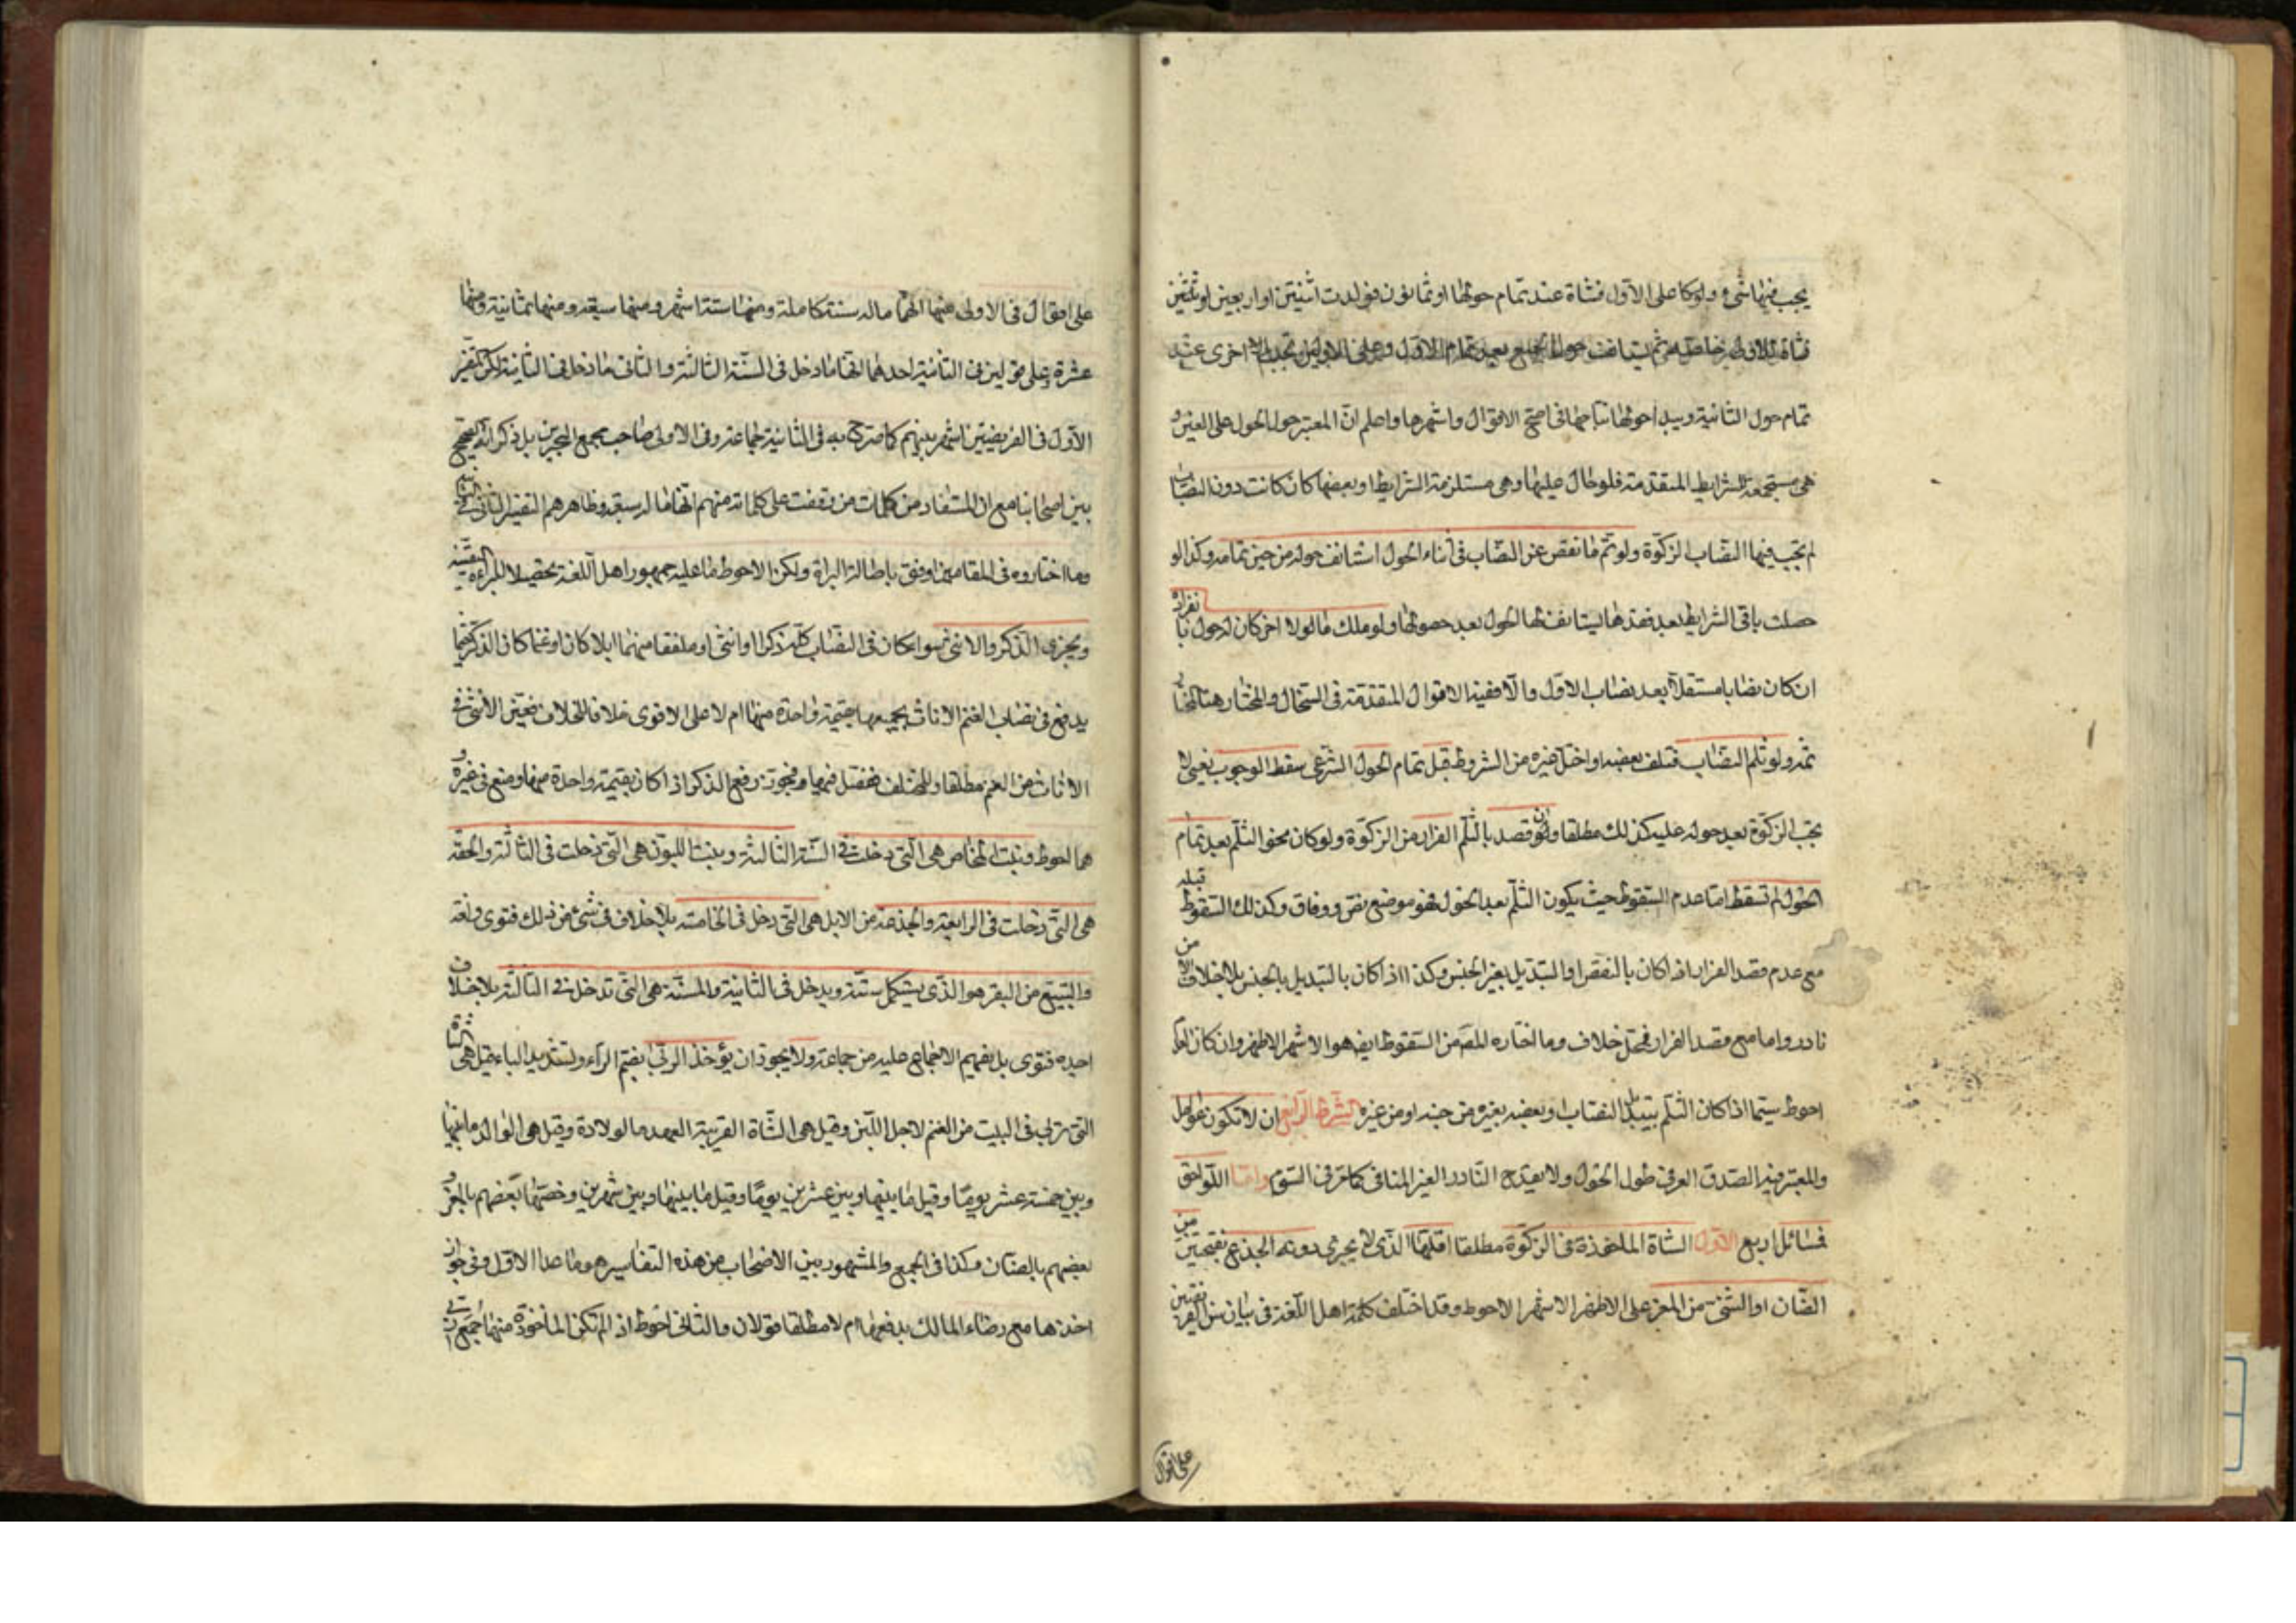 يجب فيها شيء ولو كا على الاول فشاة عند تمام حولها او ثمانون فولدت اثنتين او اربعين او ثمنين
فشاة للاولى خاصة ثم يستانف حول الجميع بعد تمام الاول وعلى الاولين تجب الاخرى عند
تمام حول الثانية ويبدأ حولها نتاجها في اصح الاقوال واشهرها واعلم ان المعتبر حول الحول على العين و
هي مستجمعة للشرايط المتقدمة فلو حال عليها وهي مستلزمة الشرايط او بعضها كان كانت دون النصاب
لم تجب فيها النصاب الزكوة ولو تم ما نقص عن النصاب في أثناء الحول استانف حوله من حين تمامه وكذا لو
حصلت باقي الشرايط بعد فقدها يستانف لها الحول بعد حصولها ولو ملك مالا اخر كان له حول بانفراده
ان كان نصابا مستقلا بعد نصاب الاول والا ففيه الاقوال المتقدمة في السخال والمختار هنا كمختار
ثمه ولو ثلم النصاب فتلف بعضه او اختل غيره من الشروط قبل تمام الحول الشرعي سقط الوجوب يعني لا
يجب الزكوة بعد حوله عليه كذلك مطلقا وان قصد بالثلم الفرار من الزكوة ولو كان نحو الثلم بعد تمام
الحول لم تسقط اما عدم السقوط حيث يكون الثلم بعد الحول فهو موضع نص ووفاق وكذلك السقوط قبله
مع عدم قصد الفرار اذا كان بالنقص او التبديل بغير الجنس وكذا اذا كان بالتبديل بالجنس بلا خلاف الا من
نادر واما مع قصد الفرار فمحل خلاف وما اختاره المص من السقوط ايض هو الاشهر الاظهر وان كان العدم
احوط سيما اذا كان الثلم بتبديل النصاب او بعضه بغيره من جنسه او من غيره الشرط الرابع ان لا تكون عوامل
والمعتبر فيه الصدق العرفي طول الحول ولا يقدح النادر الغير المنافي كما مر في السوم واما اللواحق
فمسائل اربع الاولى الشاة الماخوذة في الزكوة مطلقا اقلها الذي لا يجزي دونه الجذع بفتحتين من
الضان او الثني من المعز على الاظهر الاشهر الاحوط وقد اختلف كلمة اهل اللغة في بيان سن الفريضتين
على اقوال
على اقوال في الاولى منها انها ما له سنة كاملة ومنها ستة اشهر ومنها سبعة ومنها ثمانية ومنها
عشرة وعلى قولين في الثانية احدهما انها ما دخل في السنة الثالثة والثاني ما دخل في الثانية لكن تفسير
الاول في الفريضتين اشهر بينهم كما صرح به في الثانية جماعة وفي الاولى صاحب مجمع البحرين بل ذكر انه الصحيح
بين اصحابنا مع ان المستفاد من كلمات من وقفت على كلماته منهم انها ما له سبعة وظاهرهم التفسير الثاني في الثنية
وما اختاروه في المقامين اوفق باصالة البراة ولكن الاحوط ما عليه جمهور اهل اللغة تحصيلا للبراءة اليقينية
ويجزي الذكر والانثى سواء كان في النصاب كله ذكرا او انثى او ملفقا منهما ابلا كان او غنما كان الذكر بقيمة
يدفع في نصاب الغنم الاناث بجميعها بقيمة واحدة منها ام لا على الاقوى خلافا للخلاف فعين الانثى في
الاناث من الغنم مطلقا وللمختلف ففصل فيها فجوز دفع الذكر اذا كان بقيمة واحدة منها ومنع في غيره و
هما احوط وبنت المخاض هي التي دخلت في السنة الثانية وبنت اللبون هي التي دخلت في الثالثة والحقة
هي التي دخلت في الرابعة والجذعة من الابل هي التي دخل في الخامسة بلا خلاف في شيء من ذلك فتوى ولغة
والتبيع من البقر هو الذي يستكمل سنة ويدخل في الثانية والمسنة هي التي تدخل في الثالثة بلا خلاف
اجده فتوى بل يفهم الاجماع عليه من جماعة ولا يجوز ان يؤخذ الربى بضم الراء وتشديد الباء قيل هي الشاة
التي تربى في البيت من الغنم لاجل اللبن وقيل هي الشاة القريبة العهد بالولادة وقيل هي الوالد ما بينها
وبين خمسة عشر يوما وقيل ما بينها وبين عشرين يوما وقيل ما بينها وبين شهرين وخصها بعضهم بالمعز و
بعضهم بالضان وكذا في الجمع والمشهور بين الاصحاب من هذه التفاسير هو ما عدا الاول وفي جواز
اخذها مع رضاء المالك بدفعها ام لا مطلقا قولان والثاني احوط اذ لم تكن الماخوذة منها جمع